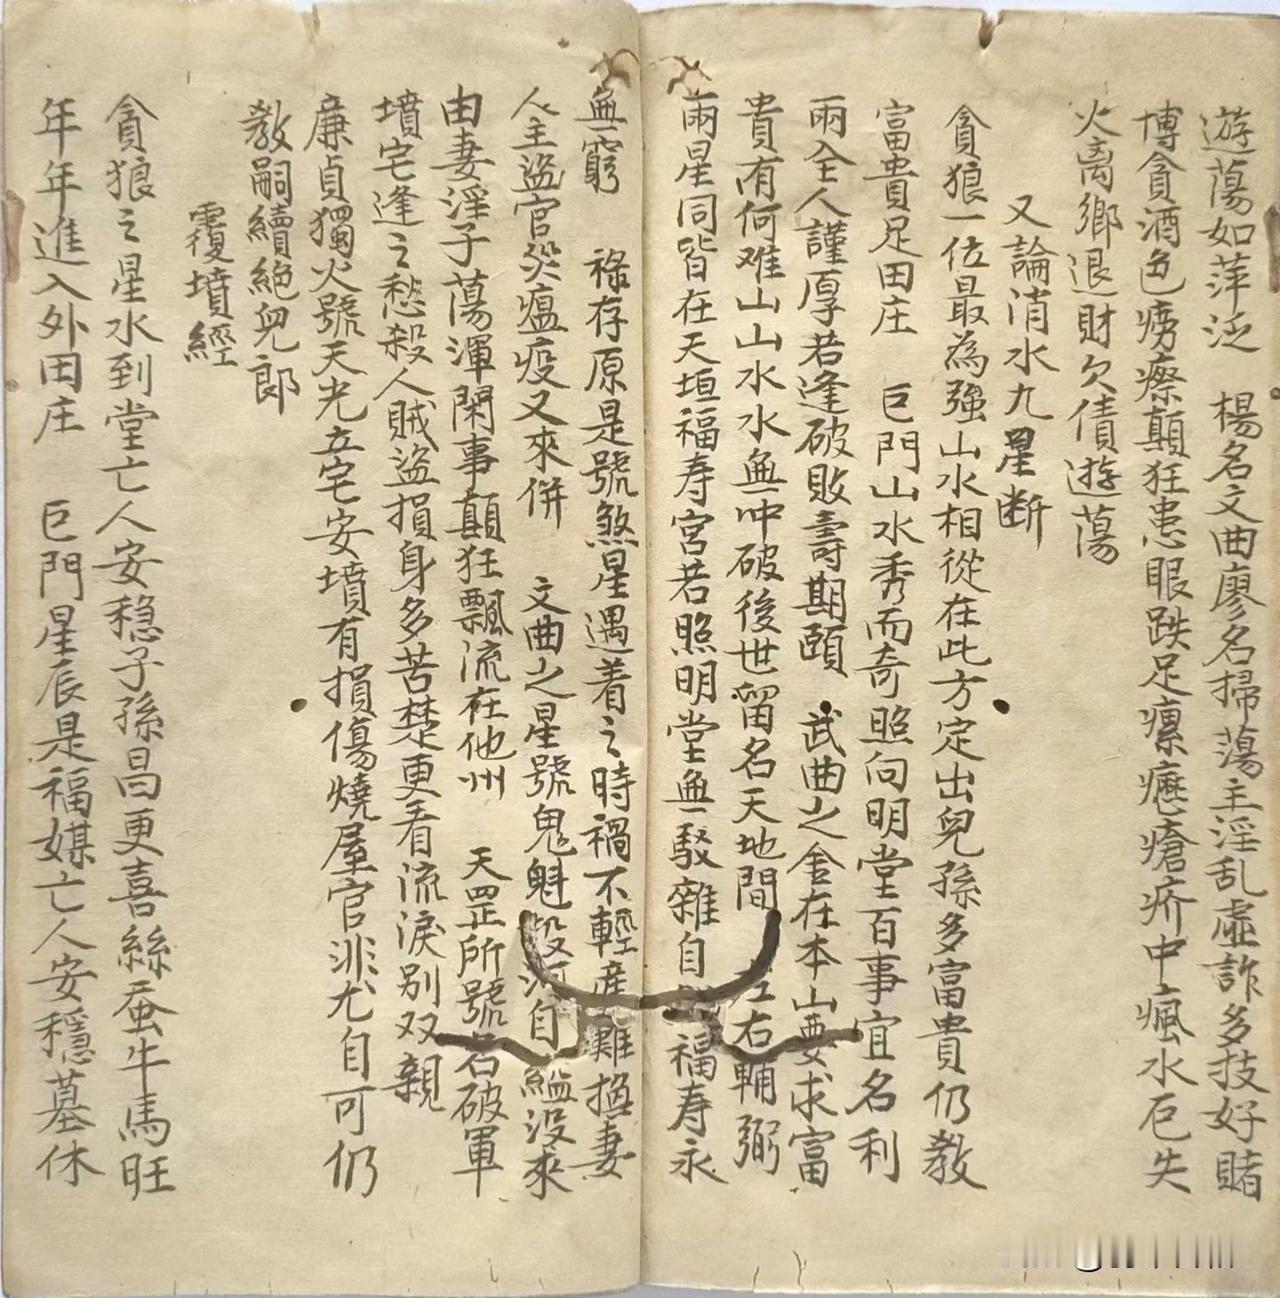 遊蕩如萍泛　楊名文曲廖名掃蕩主淫乱虛詐多技好賭
博貪酒色癆瘵顛狂患眼跌足瘰癧瘡疥中瘋水厄失
火离鄉退財欠債遊蕩
又論消水九星断
貪狼一位最為強山水相從在此方定出兒孫多富貴仍教
富貴足田庄　巨門山水秀而奇照向明堂百事宜名利
兩全人謹厚若逢破敗壽期頤　武曲之金在本山要求富
貴有何难山山水水無冲破後世留名天地間　左右輔弼
兩星同皆在天垣福寿宮若照明堂無駁雜自福寿永
無窮　祿存原是號煞星遇着之時禍不輕產難損妻
人主盜官災瘟疫又來併　文曲之星號鬼魁自縊没來
由妻淫子蕩渾閑事顛狂飄流在他州　天罡所號名破軍
墳宅逢之愁殺人賊盜損身多苦楚更看流淚别双親
廉貞獨火號天光立宅安墳有損傷燒屋官非尤自可仍
教嗣續絶兒郎
覆墳經
貪狼之星水到堂亡人安穏子孫昌更喜絲蚕牛馬旺
年年進入外田庄　巨門星辰是福媒亡人安穩墓休